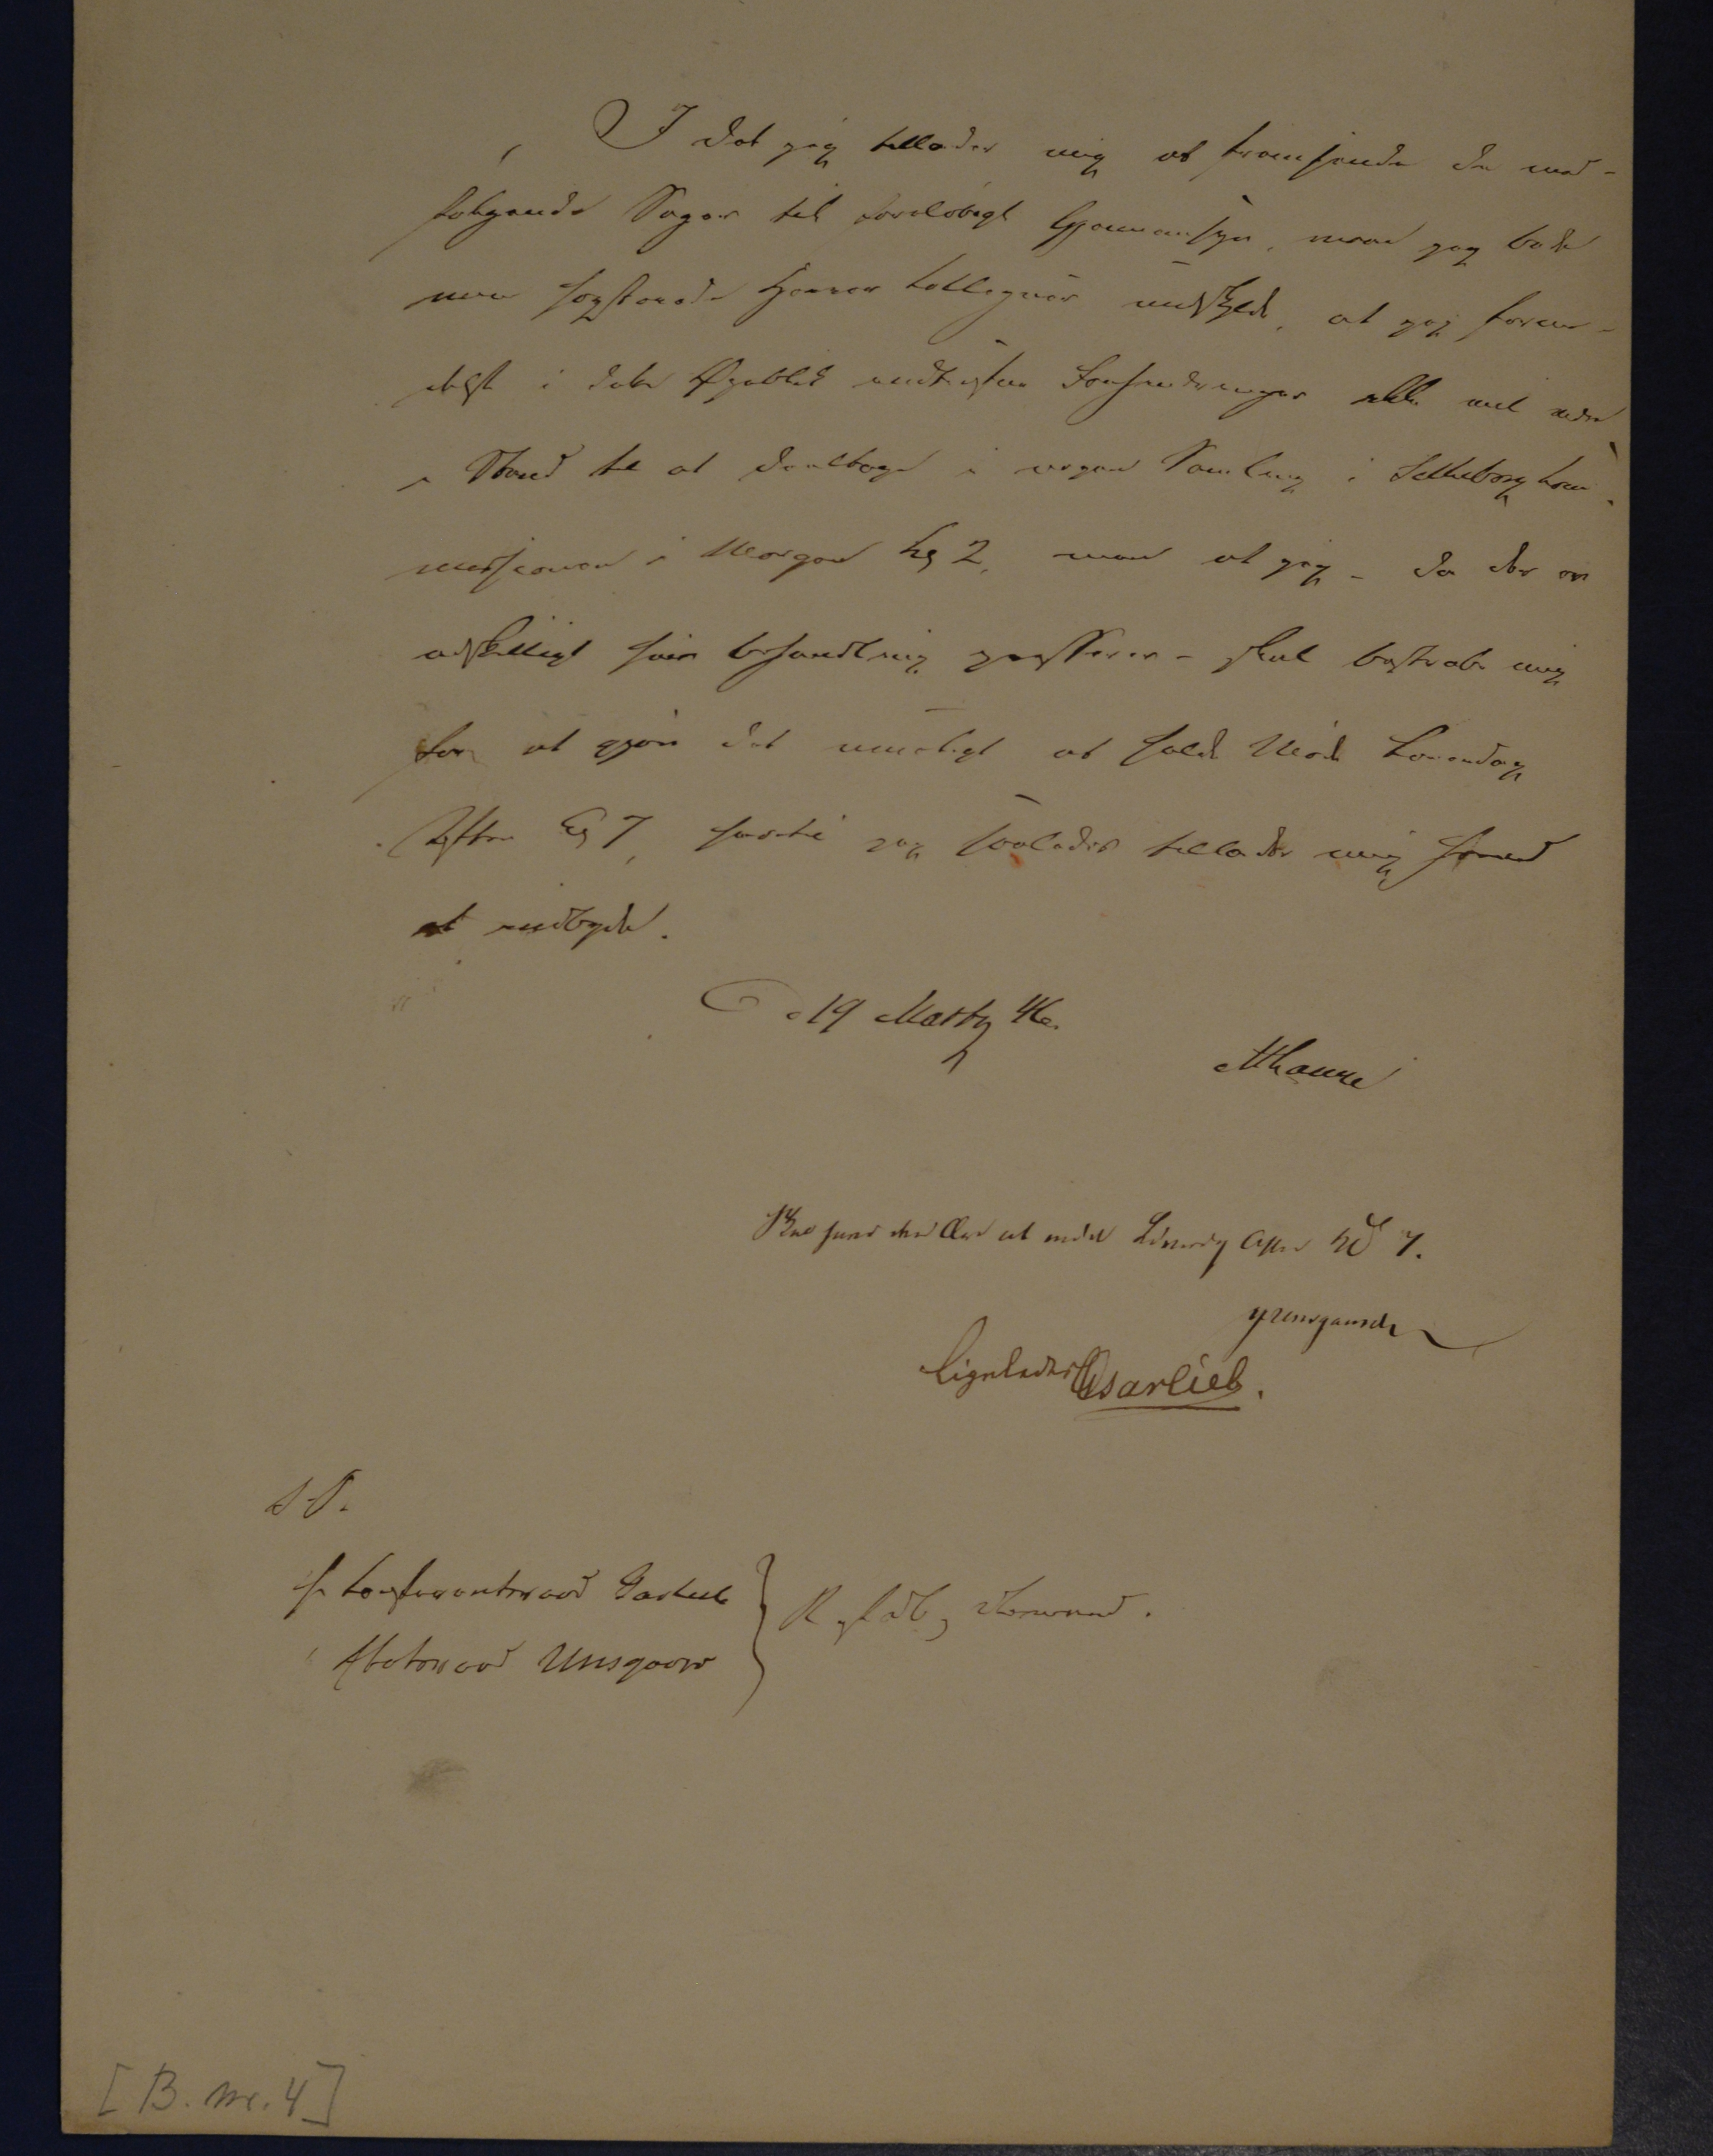 I det jeg tillader mig at fremsende de med-
følgende Sager til foreløbigt Gjennemsyn, maae jeg bede
mine høistærede Herrer Colleger undskylde, at jeg formedelst
i dette Øieblik indtrufne Forhindringer ikke vil være
i Stand til at deeltage i nogen Samling i Silkeborg Com-
missionen i Morgen Kl 2, men at jeg - da der er
adskilligt som Behandling - skal bestræbe mig
for at gjøre det mueligt at holde Møde Løverdag
Aften Kl 7, hvortil jeg saaledes tillader mig herved
at indbyde.
d 19 Marts 46.
Skal have den Ære at møde Løverdag Aften Kl 7.
Unsgaard
Ligeledes Garlieb.
S. T.
Hr Conferentsraad Garlieb
" Etatsraad Unsgaard
R af Dbg
[B. nr. 4]